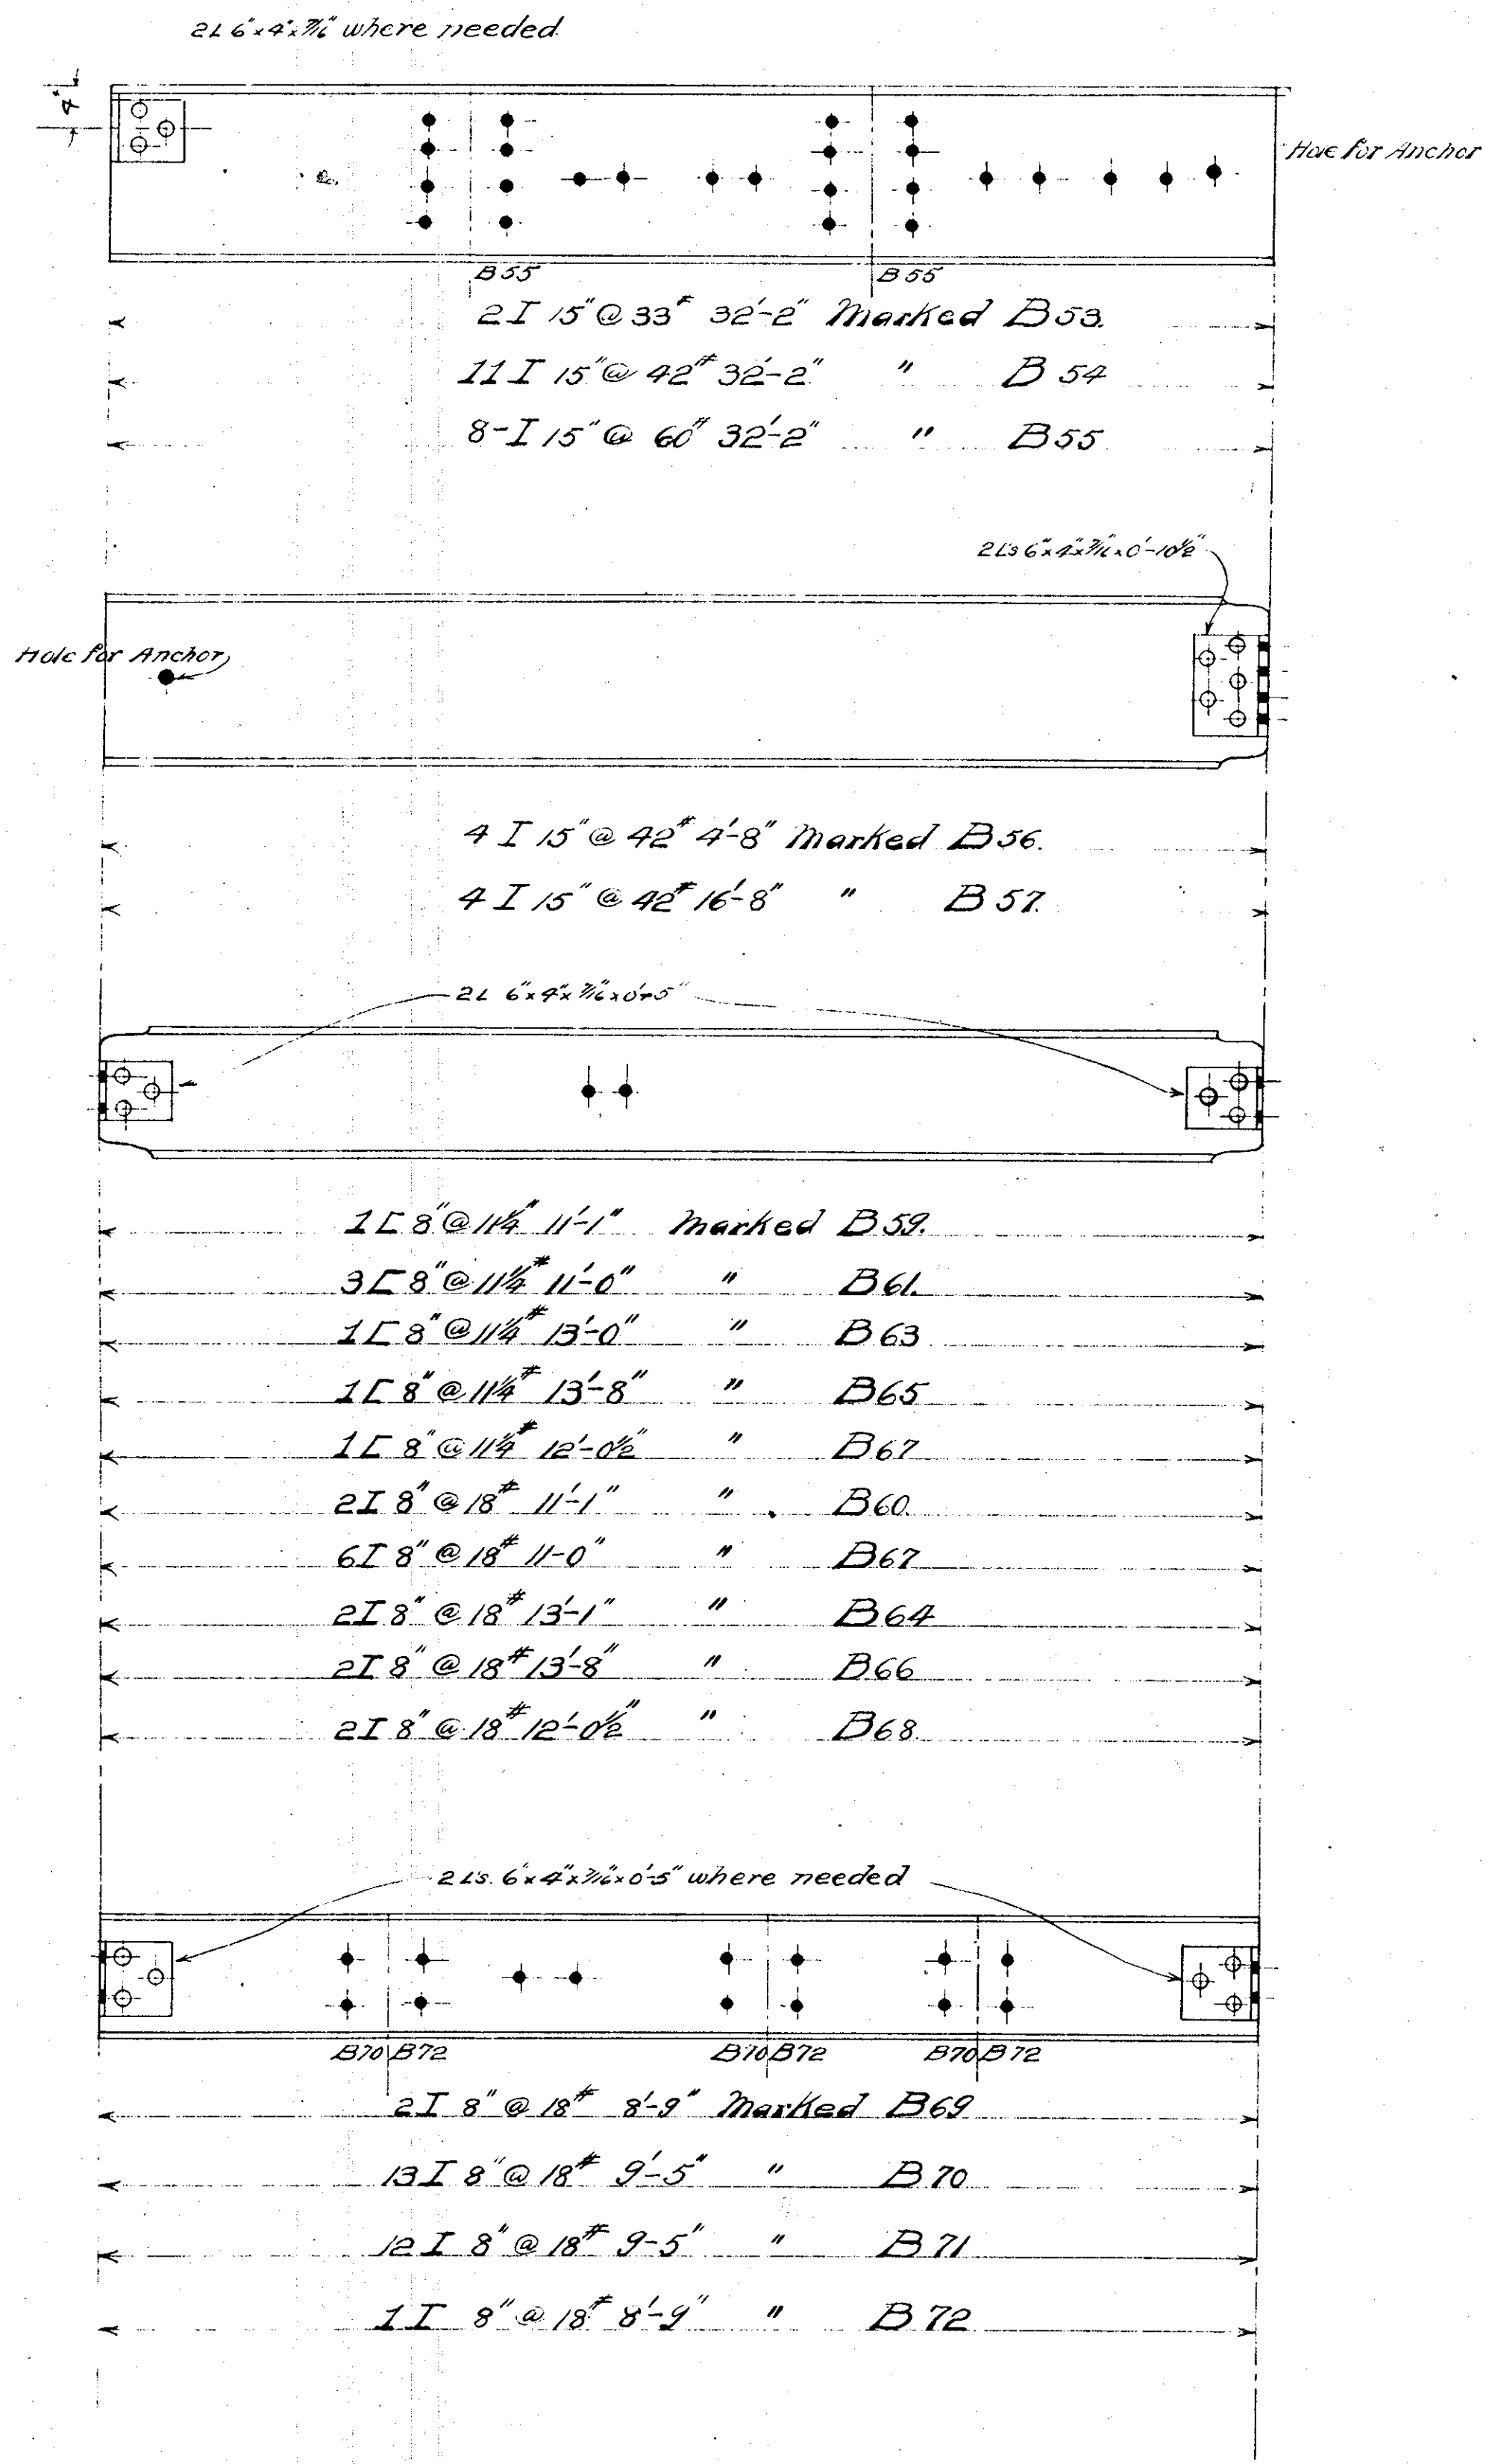 2L 6"x4"x7/16" where needed
4"
Hole for Anchor
B55 B55
2 I 15" @ 33# 32'-2" Marked B53.
11 I 15" @ 42# 32'-2" " B54
8-I 15" @ 60# 32'-2" " B55
2Ls 6"x4"x7/16"x0'-10½"
Hole for Anchor
4 I 15" @ 42# 4'-8" Marked B56.
4 I 15" @ 42# 16'-8" " B57.
2L 6"x4"x7/16"x0'-5"
1 [ 8" @ 11¼# 11'-1" Marked B59.
3 [ 8" @ 11¼# 11'-0" " B61.
1 [ 8" @ 11¼# 13'-0" " B63
1 [ 8" @ 11¼# 13'-8" " B65
1 [ 8" @ 11¼# 12'-0½" " B67
2 I 8" @ 18# 11'-1" " B60.
6 I 8" @ 18# 11-0" " B67
2 I 8" @ 18# 13'-1" " B64
2 I 8" @ 18# 13'-8" " B66
2 I 8" @ 18# 12'-0½" " B68.
2 Ls. 6"x4"x7/16"x0'-5" where needed
B70 B72 B70 B72 B70 B72
2 I 8" @ 18# 8'-9" Marked B69
13 I 8" @ 18# 9'-5" " B70
12 I 8" @ 18# 9-5" " B71
1 I 8" @ 18# 8'-9" " B72